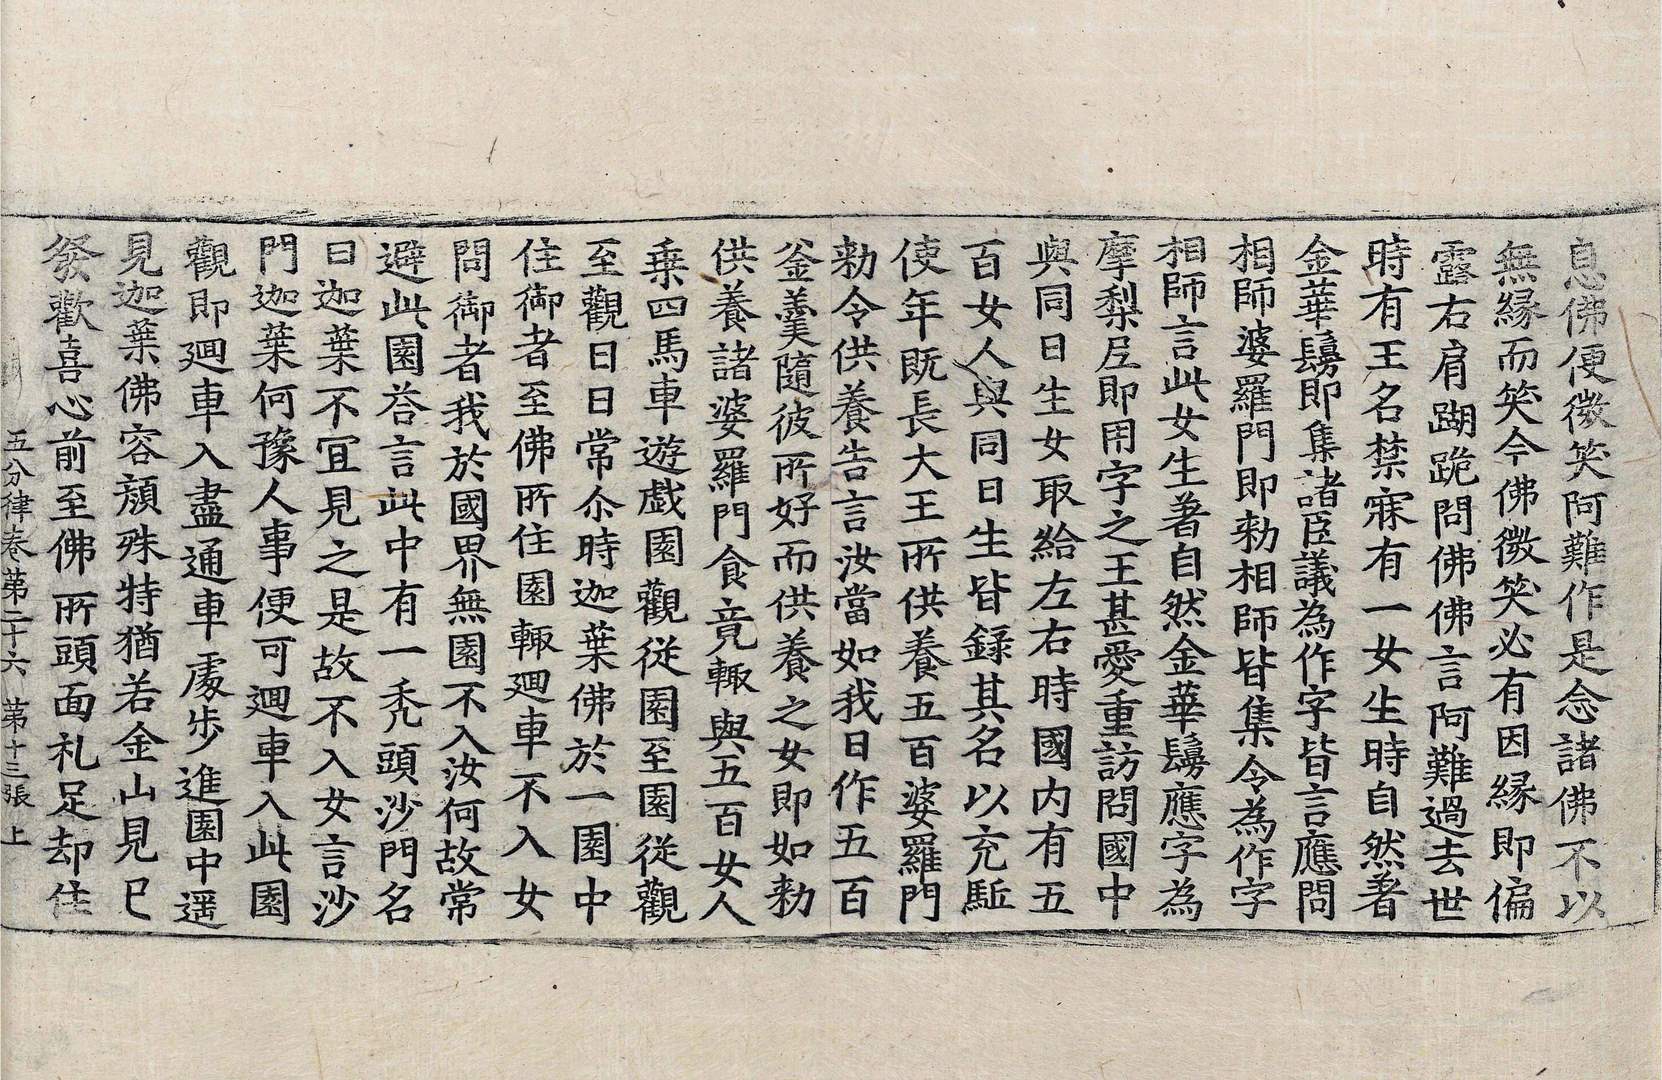 息佛便微笑阿難作是念諸佛不以
無緣而笑今佛微笑必有因緣即偏
露右肩䠒跪問佛佛言阿難過去世
時有王名禁寐有一女生時自然著
金華鬘即集諸臣議為作字皆言應問
相師婆羅門即勑相師皆集令為作字
相師言此女生著自然金華鬘應字為
摩梨尼即用字之王甚愛重訪問國中
與同日生女取給左右時國內有五
百女人與同日生皆錄其名以充駈
使年既長大王所供養五百婆羅門
勑令供養告言汝當如我日作五百
釜羹隨彼所好而供養之女即如勑
供養諸婆羅門食竟輙與五百女人
乗四馬車遊戲園觀從園至園從觀
至觀日日常尒時迦葉佛於一園中
住御者至佛所住園輙迴車不入女
問御者我於國界無園不入汝何故常
避此園荅言此中有一禿頭沙門名
曰迦葉不宜見之是故不入女言沙
門迦葉何豫人事便可迴車入此園
觀即迴車入盡通車處步進園中遥
見迦葉佛容顔殊特猶若金山見已
發歡喜心前至佛所頭面礼足却住
五分律卷第二十六　第十三張　上